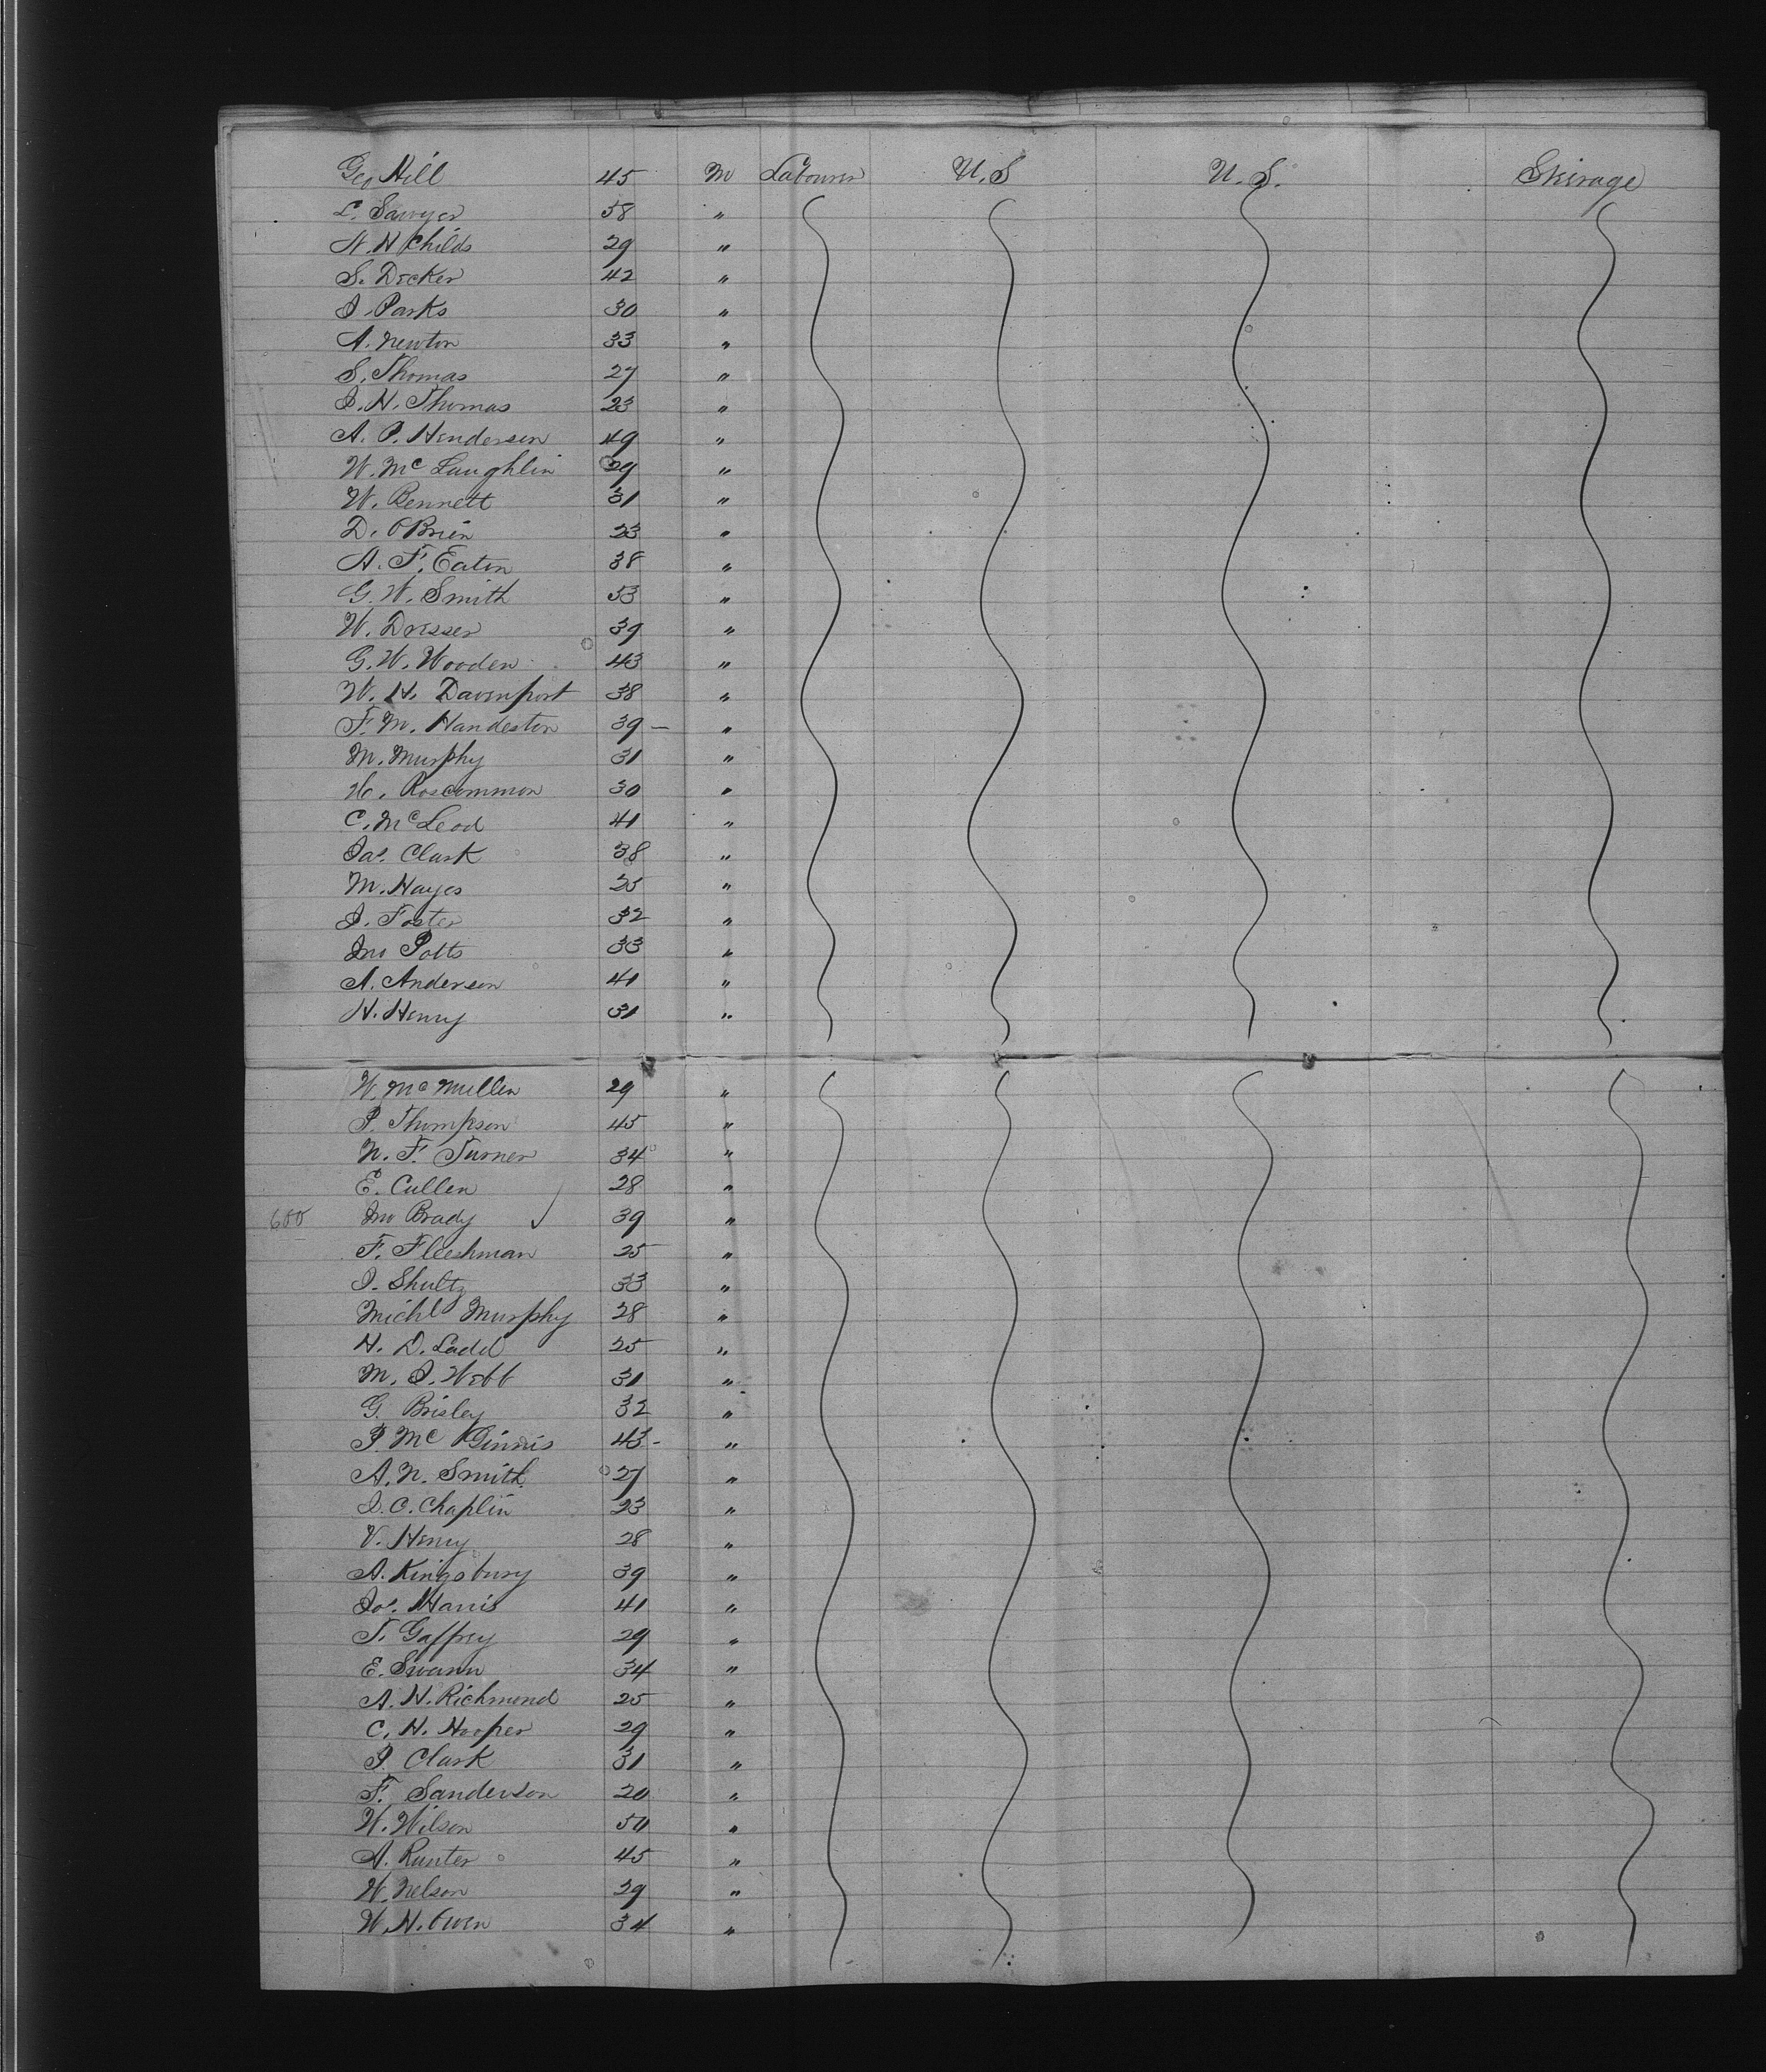 Geo Hill 45 M Labourer U.S U.S. Steirage
L. Sawyer 58 "
N. H Childs 29 "
S. Decker 42 "
J. Parks 30 "
A. Newton 33 "
S. Thomas 27 "
J. H. Thomas 23 "
A. P. Henderson 49 "
W. Mc Laughlin 29 "
W. Bennett 31 "
D. OBrien 23 "
A. F. Eaton 38 "
G. W. Smith 53 "
W. Dresser 39 "
G. W. Wooden 43 "
W. H. Davenport 38 "
F. M. Handeston 39 – "
M. Murphy 31 "
W. Roscommon 30 "
C. McLeod 41 "
Jas. Clark 38 "
M. Hayes 25 "
J. Foster 32 "
Jno Potts 33 "
A. Anderson 41 "
H. Henry 31 "
W. McMullen 29 "
P. Thompson 45 "
N. F. Turner 34 "
E. Cullen 28 "
600 Jno Brady ✓ 39 "
F. Fleshman 25 "
J. Shultz 33 "
Michl Murphy 28 "
H. D. Ladd 25 "
M. J. Webb 31 "
G. Brisley 32 "
P Mc Ginnis 43 - "
A. N. Smith 27 "
J. C. Chaplin 23 "
V. Henry 28 "
A. Kingsbury 39 "
Jos. Harris 41 "
T. Gaffrey 29 "
E. Swann 34 "
A. H. Richmond 25 "
C. H. Hooper 29 "
P. Clark 31 "
F. Sanderson 20 "
W. Wilson 50 "
A. Runter 45 "
W. Nelson 29 "
W. H. Owen 34 "